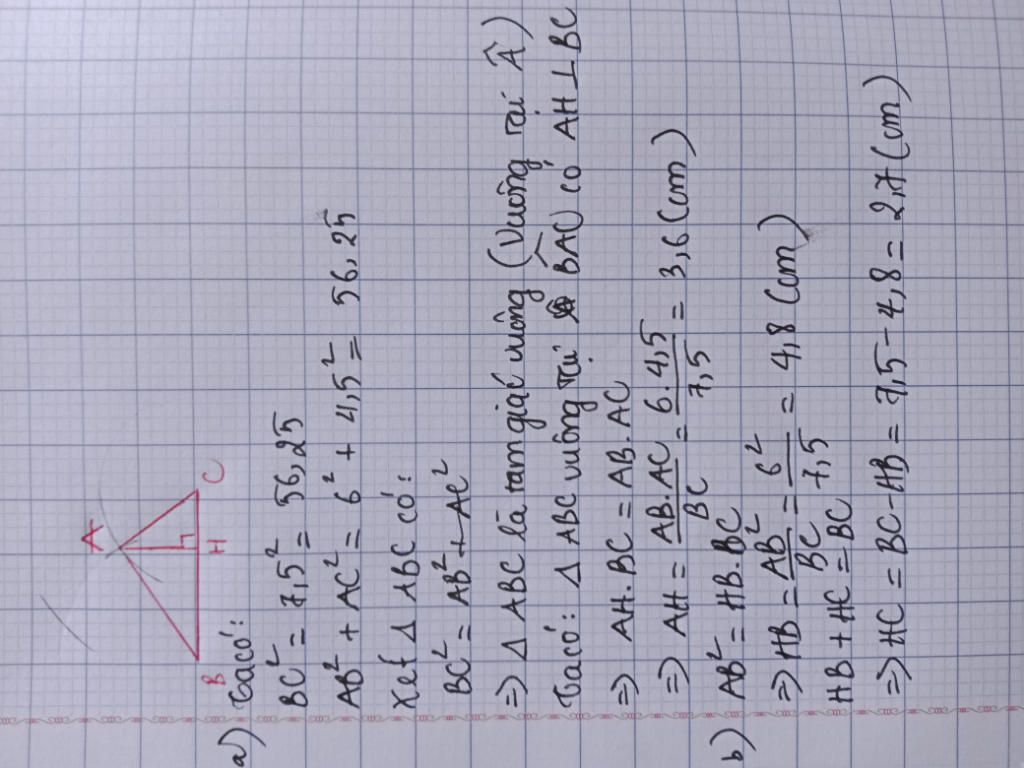 A
B H C
a) Ta có:
BC² = 7,5² = 56,25
AB² + AC² = 6² + 4,5² = 56,25
Xét Δ ABC có:
BC² = AB² + AC²
=> Δ ABC là tam giác vuông (Vuông tại Â)
Ta có: Δ ABC vuông tại BAC có AH ⊥ BC
=> AH.BC = AB.AC
=> AH = AB.AC/BC = 6.4,5/7,5 = 3,6 (cm)
b) AB² = HB.BC
=> HB = AB²/BC = 6²/7,5 = 4,8 (cm)
HB + HC = BC
=> HC = BC - HB = 7,5 - 4,8 = 2,7 (cm)